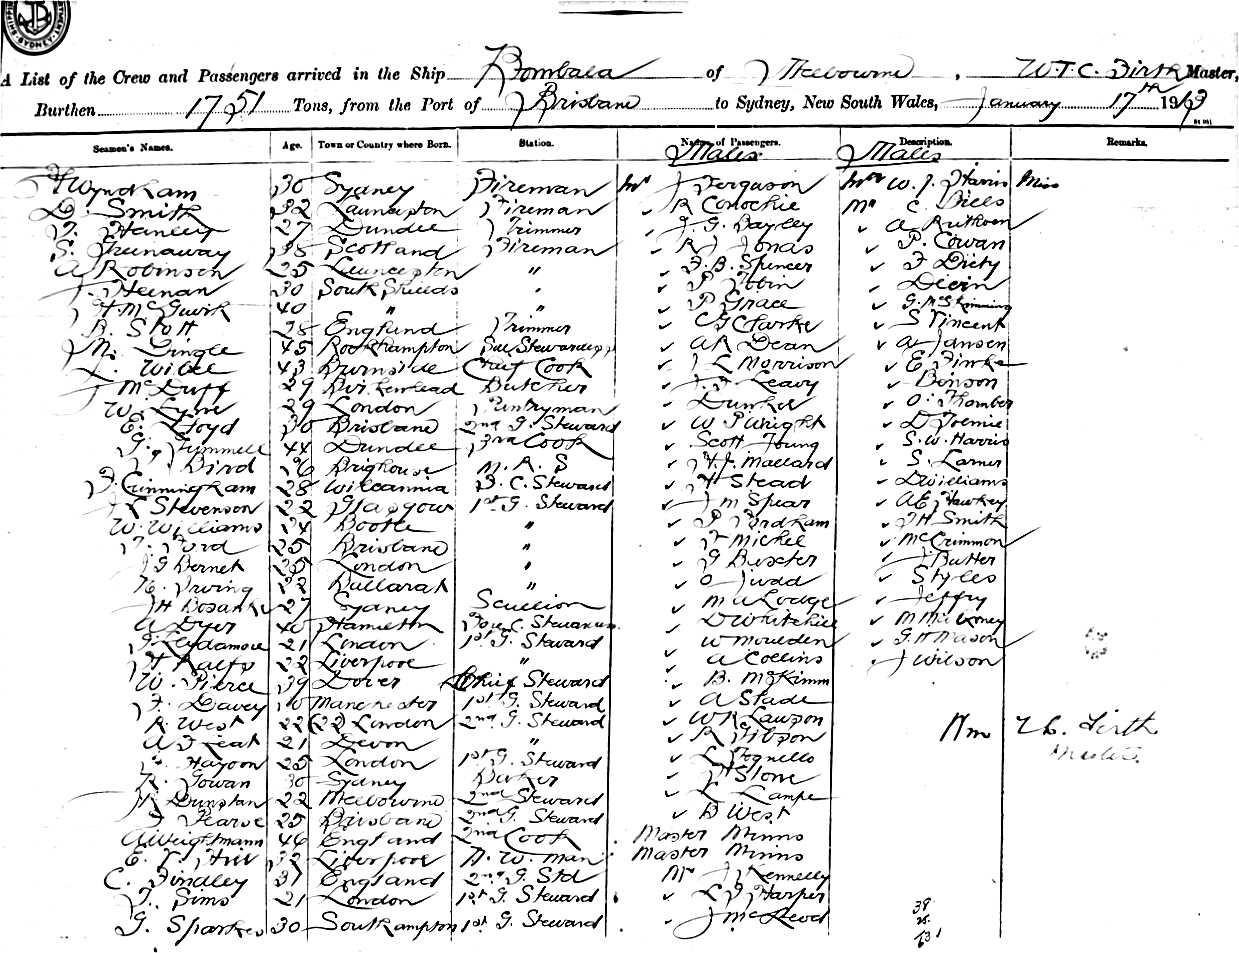 A List of the Crew and Passengers arrived in the Ship Bombala of Melbourne, W.T.C. Firth Master,
Burthen 1751 Tons, from the Port of Brisbane to Sydney, New South Wales, January 17th 19
Seamen's Names. Age. Town or Country where Born. Station. Names of Passengers. Description. Remarks.
Males Males
Wyndham 30 Sydney Fireman Mr J Ferguson W. J. Harris Miss
D. Smith 32 Launceston Fireman R Conochie Mr C Bills
Hanley 27 Dundee Trimmer J. G. Bayley A Ruthven
S. Greenaway 38 Scotland Fireman R J Jonas P. Cowan
A Robinson 25 Launceston " F. B. Spencer F Diety
J. Heenan 30 South Shields " P Tobin Devin
40 " P Grace
B. Stott 28 England Trimmer C G Clarke S Vincent
M. Dingle 45 Rockhampton A R Dean A Jansen
L. Wilde 43 Burnside Chief Cook J L Morrison E Finke
J McDuff 29 Birkenhead Butcher J. F. Leavy Benson
W. Lyne 29 London Pantryman Dunker O. Thomber
E. Lloyd 30 Brisbane 2nd G. Steward W P Wright
G. Gemmell 44 Dundee 3rd Cook Scott Young S. W. Harris
Bird 26 Brighouse M. R. S H. J. Mallard S. Larner
F. Cunningham 28 Wilcannia B. C. Steward H Stead D Williams
J L Stevenson 22 Glasgow 1st G. Steward J M Spear A E Hawkey
W. Williams 24 Bootle " P Fordham J H Smith
Ford 25 Brisbane " F Michel McCrimmon
J G Bernet 25 London " G Buxter J Butter
N. Irving 22 Ballarat " O Judd Styles
J H Bosanko 27 Sydney Scullion M A Lodge Jeffry
A Dyer 40 Hamilton D Whitehill
G. Leydamore 21 London 1st G. Steward W Moulden G. H Mason
H Ralfs 22 Liverpool " A Collins J Wilson
W. Pierce 39 Dover Chief Steward B. McKimm
F. Davey Manchester 1st G. Steward A Slade
R. West 22 London 2nd G. Steward W R Lawson Wm T C. Firth
A J Leat 21 Devon " R Gibson Master
Haydon 25 London 1st G. Steward L Fognello
R. Gowan 30 Sydney Baker H Stone
H Dunstan 22 Melbourne 2nd Steward L Lampe
J Pearse 25 Brisbane 2nd G. Steward B West
A Weightmann 46 England 2nd Cook Master Minns
E. T. Hill 32 Liverpool N. W. man Master Minns
C. Findley 37 England 2nd G. Std Mr J Kennelly
J. Sims 21 London 1st G. Steward L J Harper
G. Sparkes 30 Southampton 1st G. Steward J McLeod
38
25